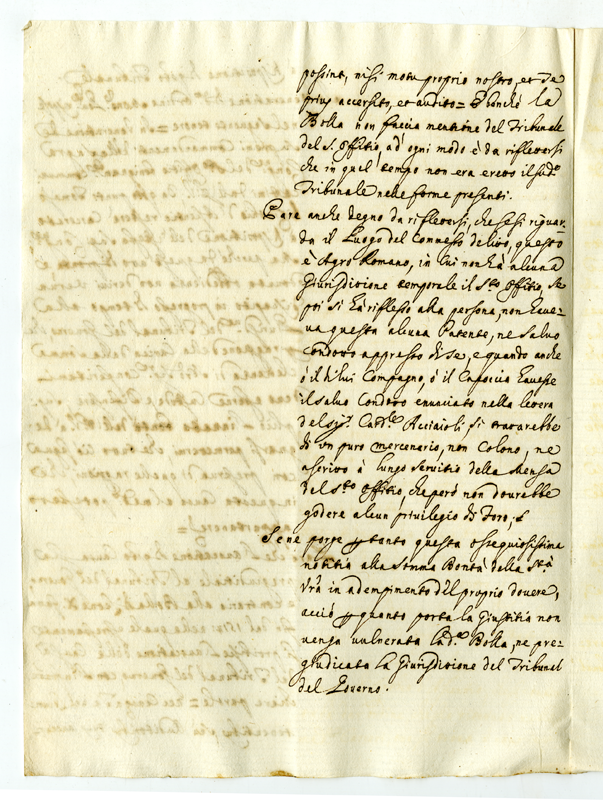 possint, nisi motu proprio nostro, et de
prius accersito, et audito = Benchè la
Bolla non faccia mentione del Tribunale
del S. Offitio, ad ogni modo è da riflettersi
che in quel tempo non era eretto il sud.º
Tribunale nelle forme presenti.
Pare anche degno da riflettersi, che se si riguar=
da il Luogo del Commesso delitto, questo
è Agro Romano, in cui non hà alcuna
Giurisditione temporale il S.to Offitio, se
poi si hà riflesso alla persona, non haue=
ua questa alcuna Patente, ne saluo
Condotto appresso di se, e quando anche
ò il di lui Compagno, ò il Capoccia hauesse
il saluo Condotto enunciato nella lettera
del sig.r Card.le Acciaioli, si trattarebbe
di un puro mercenario, non Colono, ne
ascritto à lungo seruitio della Mensa
del S.to Offitio, che però non dourebbe
godere alcun priuilegio di Foro;
Se ne porge ꝑtanto questa ossequiosissima
notitia alla Somma Bontà della S.tà
V.ra in adempimento del proprio douere,
acciò ꝑ quanto porta la Giustitia non
uenga uulnerata la d.a Bolla, ne pre=
giudicata la Giurisditione del Tribunal
del Gouerno.